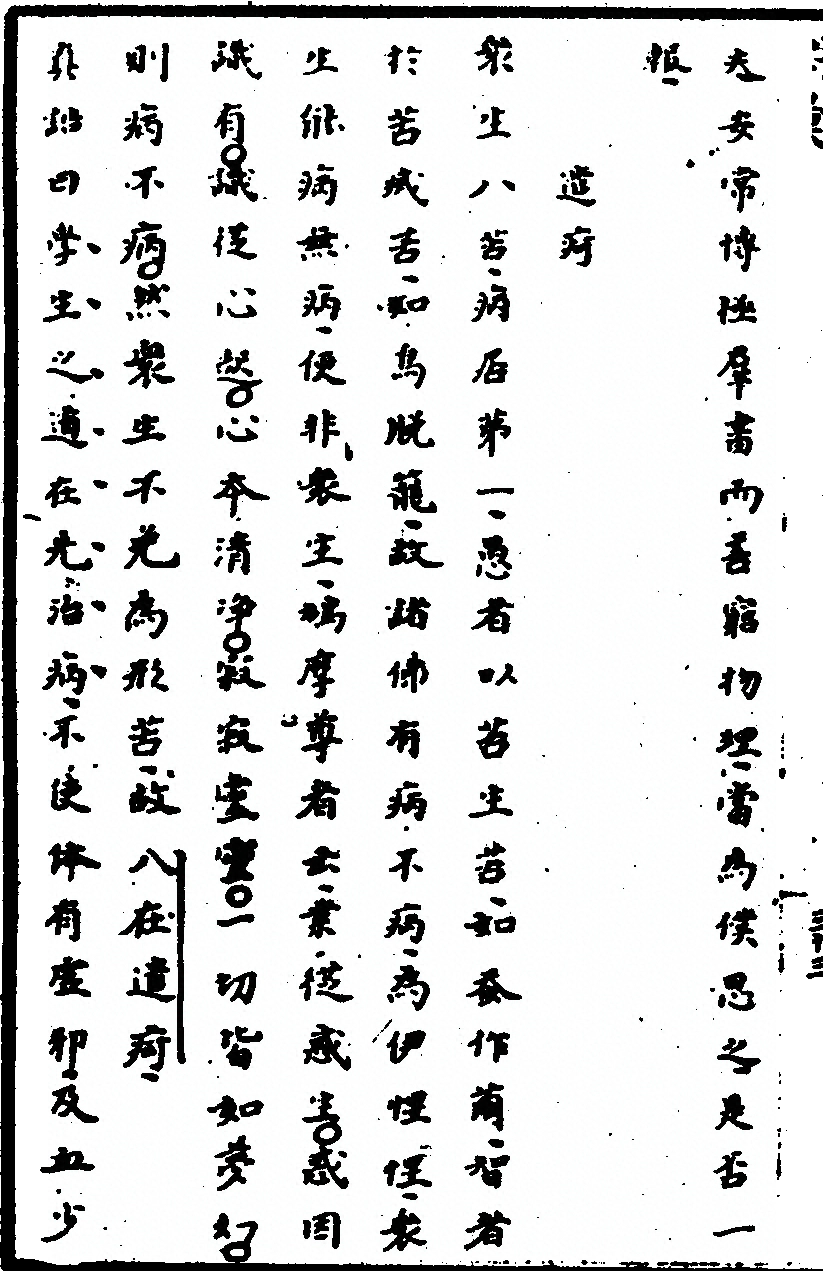 夫安常博極群書而善窮物理當為僕思之是否一
報
遣疴
衆生八苦病居第一愚者以苦生苦如蚕作繭智者
於苦滅苦如鳥脫籠故諸佛有病不病為伊惺惺衆
生能病無病便非衆生鳩摩尊者云業從惑生惑因
識有識從心起心本清淨寂寂靈靈一切皆如夢幻
則病不病然衆生不免為形苦故八在遣疴
真誥曰学生之道在先治病不使体有虛邪及血少